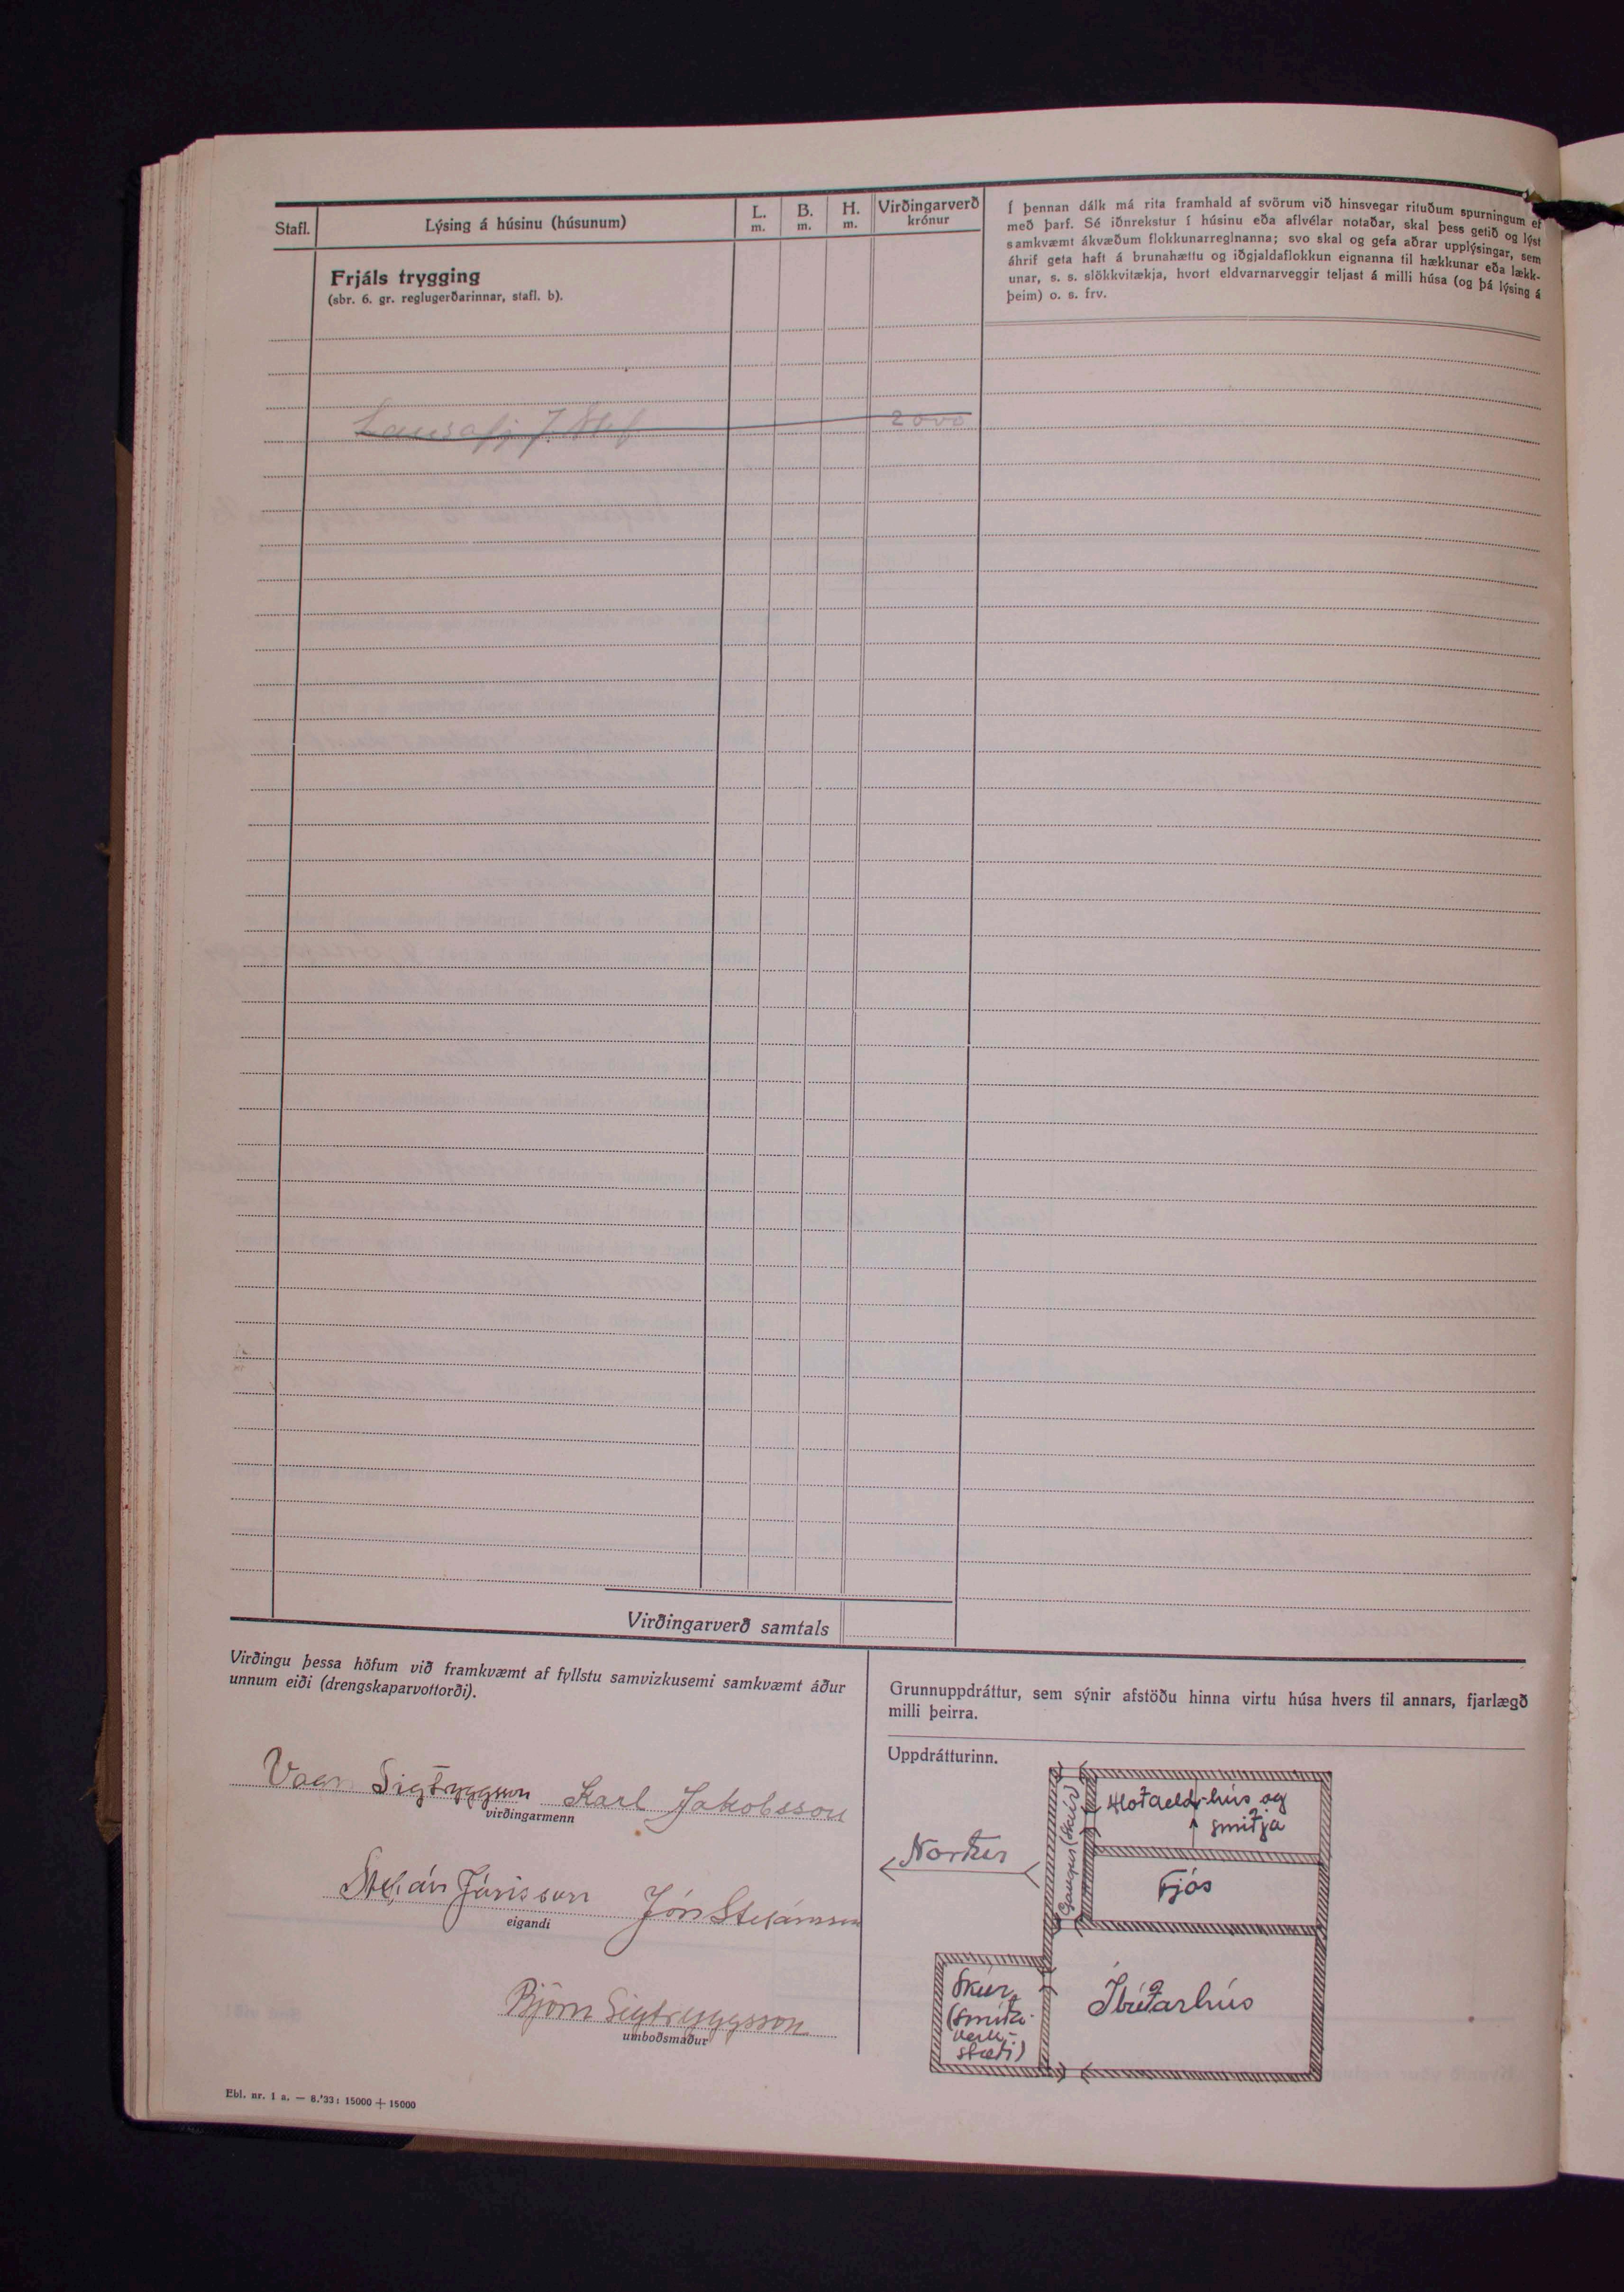 Stafl.
Lýsing á húsinu (húsunum)
L.
m.
B.
m.
H.
m.
Virðingarverð
krónur
Frjáls trygging
(sbr. 6. gr. reglugerðarinnar, stafl. b).
Lausafj J. Stef
2000
Í þennan dálk má rita framhald af svörum við hinsvegar rituðum spurningum ef
með þarf. Sé iðnrekstur í húsinu eða aflvélar notaðar, skal þess getið og lýst
samkvæmt ákvæðum flokkunarreglnanna; svo skal og gefa aðrar upplýsingar, sem
áhrif geta haft á brunahættu og iðgjaldaflokkun eignanna til hækkunar eða lækk-
unar, s. s. slökkvitækja, hvort eldvarnarveggir teljast á milli húsa (og þá lýsing á
þeim) o. s. frv.
Virðingarverð samtals
Virðingu þessa höfum við framkvæmt af fyllstu samvizkusemi samkvæmt áður
unnum eiði (drengskaparvottorði).
Vagn Sigtryggsson Karl Jakobsson
virðingarmenn
Stefán Jónsson Jón Stefánsson
eigandi
Björn Sigtryggsson
umboðsmaður
Ebl. nr. 1 a. — 8.'33: 15000 + 15000
Grunnuppdráttur, sem sýnir afstöðu hinna virtu húsa hvers til annars, fjarlægð
milli þeirra.
Uppdrátturinn.
Norður
Gangur (skúr)
Hlóðaeldhús og
smiðja
Fjós
Íbúðarhús
Skúr
(smíða-
verk-
stæði)